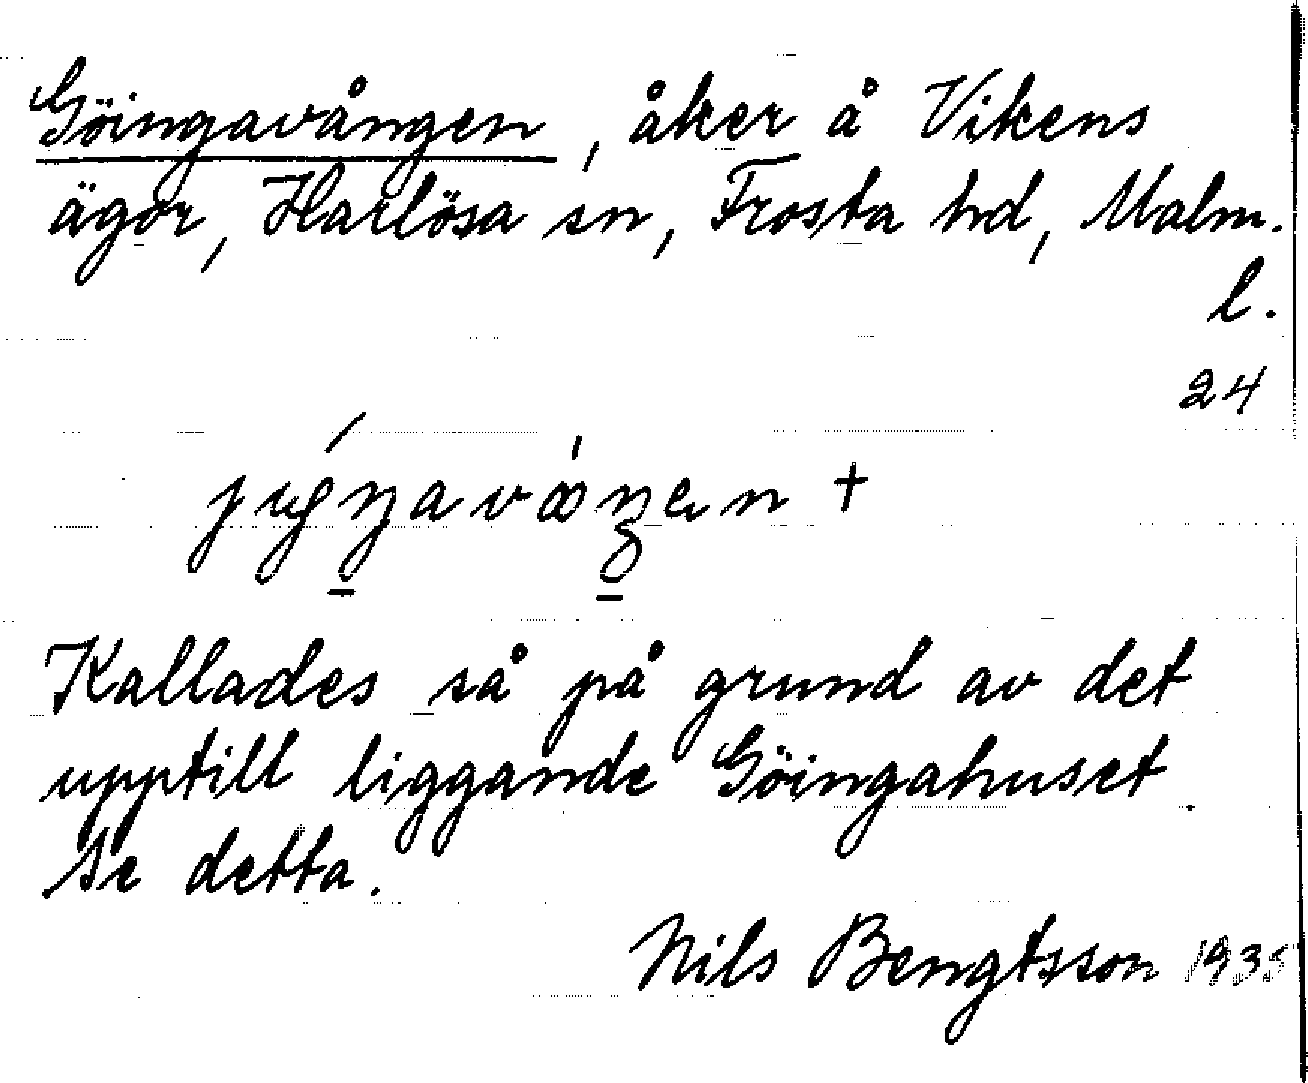 Göingavången, åker å Vikens
ägor, Harlösa sn, Frosta hd, Malm.
l.
24
Kallades så på grund av det
upptill liggande Göingahuset.
Se detta.
Nils Bengtsson 1935